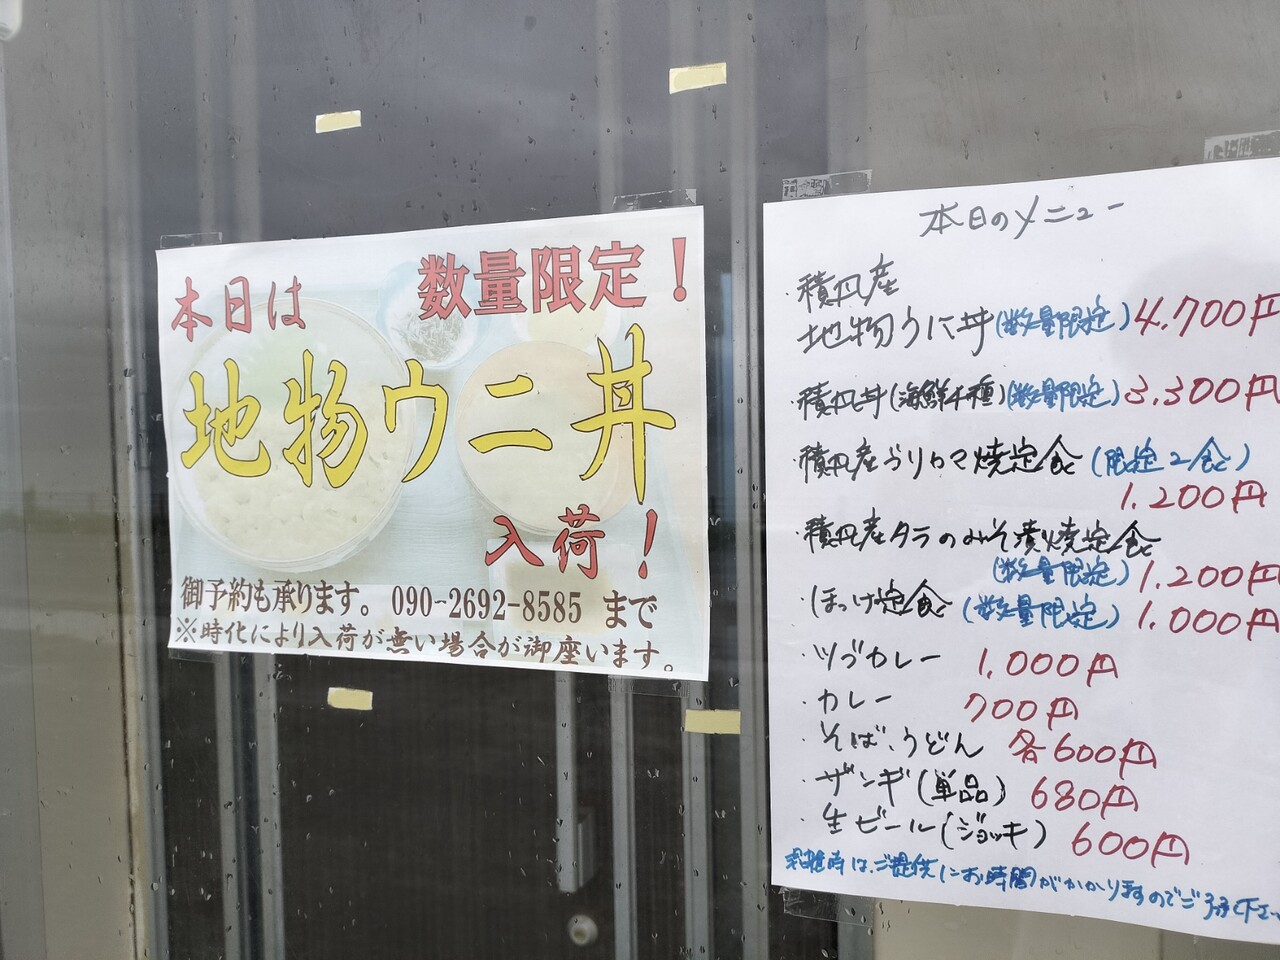 本日は
数量限定！
地物ウニ丼
入荷！
御予約も承ります。 090-2692-8585 まで
※時化により入荷が無い場合が御座います。
本日のメニュー
・積丹産
地物うに丼(数量限定) 4.700円
・積丹丼(海鮮4種)(数量限定) 3.300円
・積丹産ブリカマ焼定食 (限定2食)
1.200円
・積丹産タラのみそ漬焼定食
(数量限定) 1.200円
・ほっけ定食 (数量限定) 1.000円
・ツブカレー 1.000円
・カレー 700円
・そば、うどん 各600円
・ザンギ(単品) 680円
・生ビール(ジョッキ) 600円
混雑時は、ご提供にお時間がかかりますのでご了承下さい